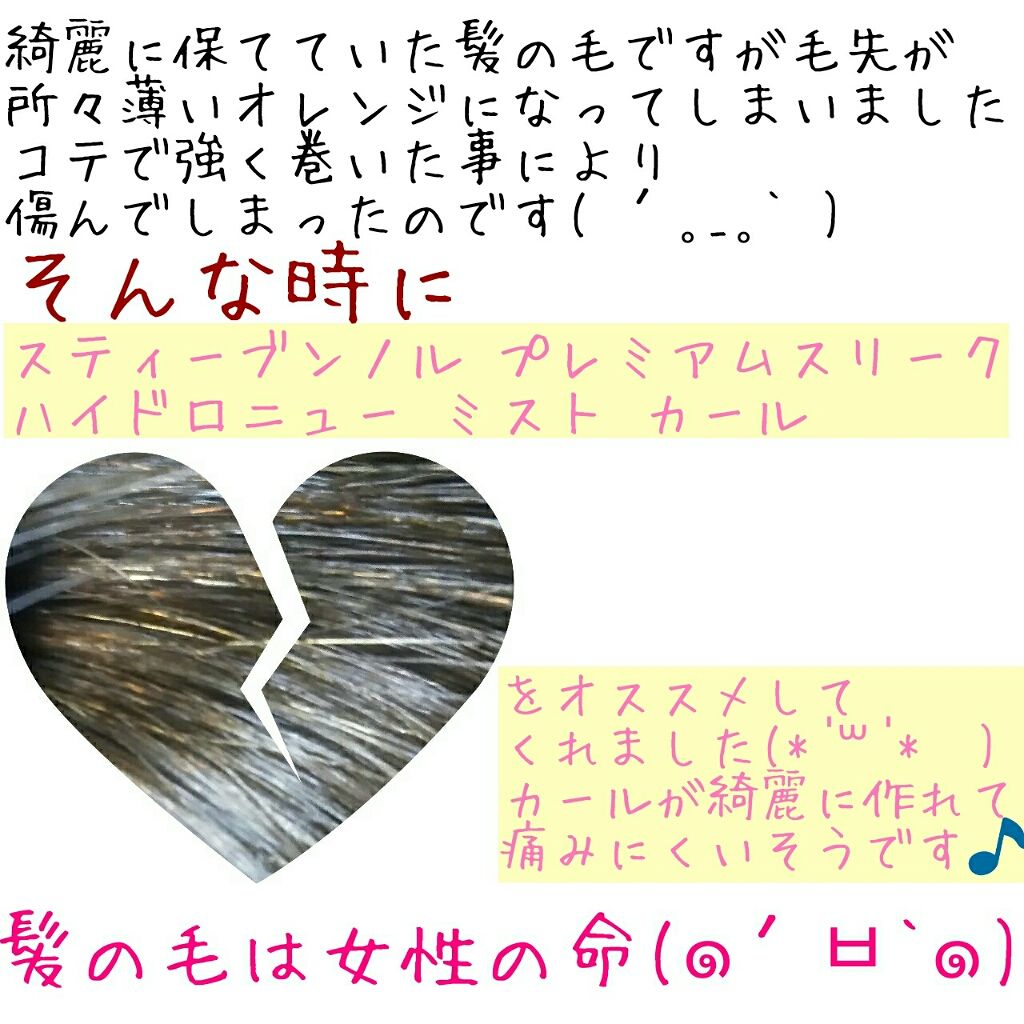 綺麗に保てていた髪の毛ですが毛先が
所々薄いオレンジになってしまいました
コテで強く巻いた事により
傷んでしまったのです( ´ ｡_｡｀ )
そんな時に
スティーブンノル プレミアムスリーク
ハイドロニュー ミスト カール
をオススメして
くれました(*'꒳'* )
カールが綺麗に作れて
痛みにくいそうです♪
髪の毛は女性の命(๑′ㅂ`๑)